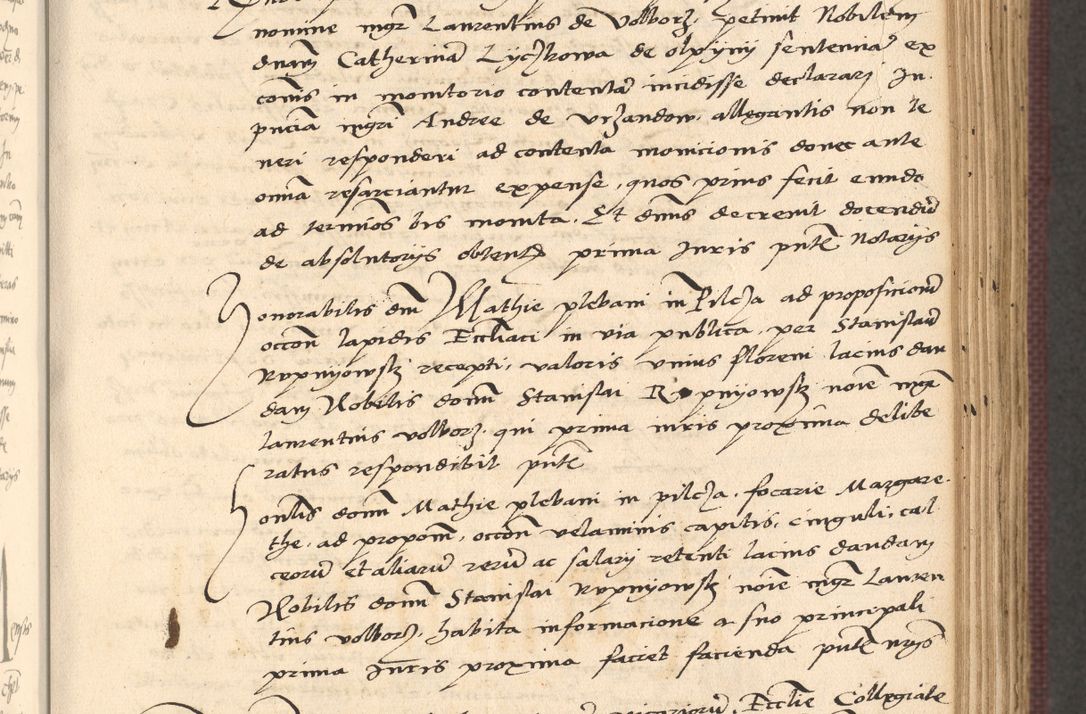 nomine mgr Laurentius de Volborz petivit Nobilem
dnam Catherinā Lyczkowa de olpyny sentenciā ex
comīs in monitorio contentā incidisse declarari In
pnciā mgri Andree de Vrzandow allegantis non te
neri responderi ad contenta monicionis donec ante
omnia resarciantur expense, quos prius fecit eundo
ad terminos bis monita. Et dnus decrevit docendū
de absolutoriis obtent prima Iuris pntē Notariis
Honorabilis dni Mathie plebani in Pilcza ad proposicionē
occōn lapidis Eccliaci in via publica per Stanislaū
Rupnyowsky recepti, valoris unius floreni lacius dan
dam Nobilis domī Stanislai Rupnyowsky noīe mgr
laurentius volborz qui prima iuris proxima delibe
ratus respondebit pntē
Honlis domī Mathie plebani in pilcza, focarie Margare
the, ad propom, occōn velaminis capitis, cinguli, cal
ceorū et aliarū rerū ac salarii retenti lacius dandam
Nobilis domī Stanislai Rupnyowsky noīe mgr Lauren
tius volborz, habita informacione a suo principali
prima Iuris proxima faciet facienda pntē nrjs
Ecclie Collegiate